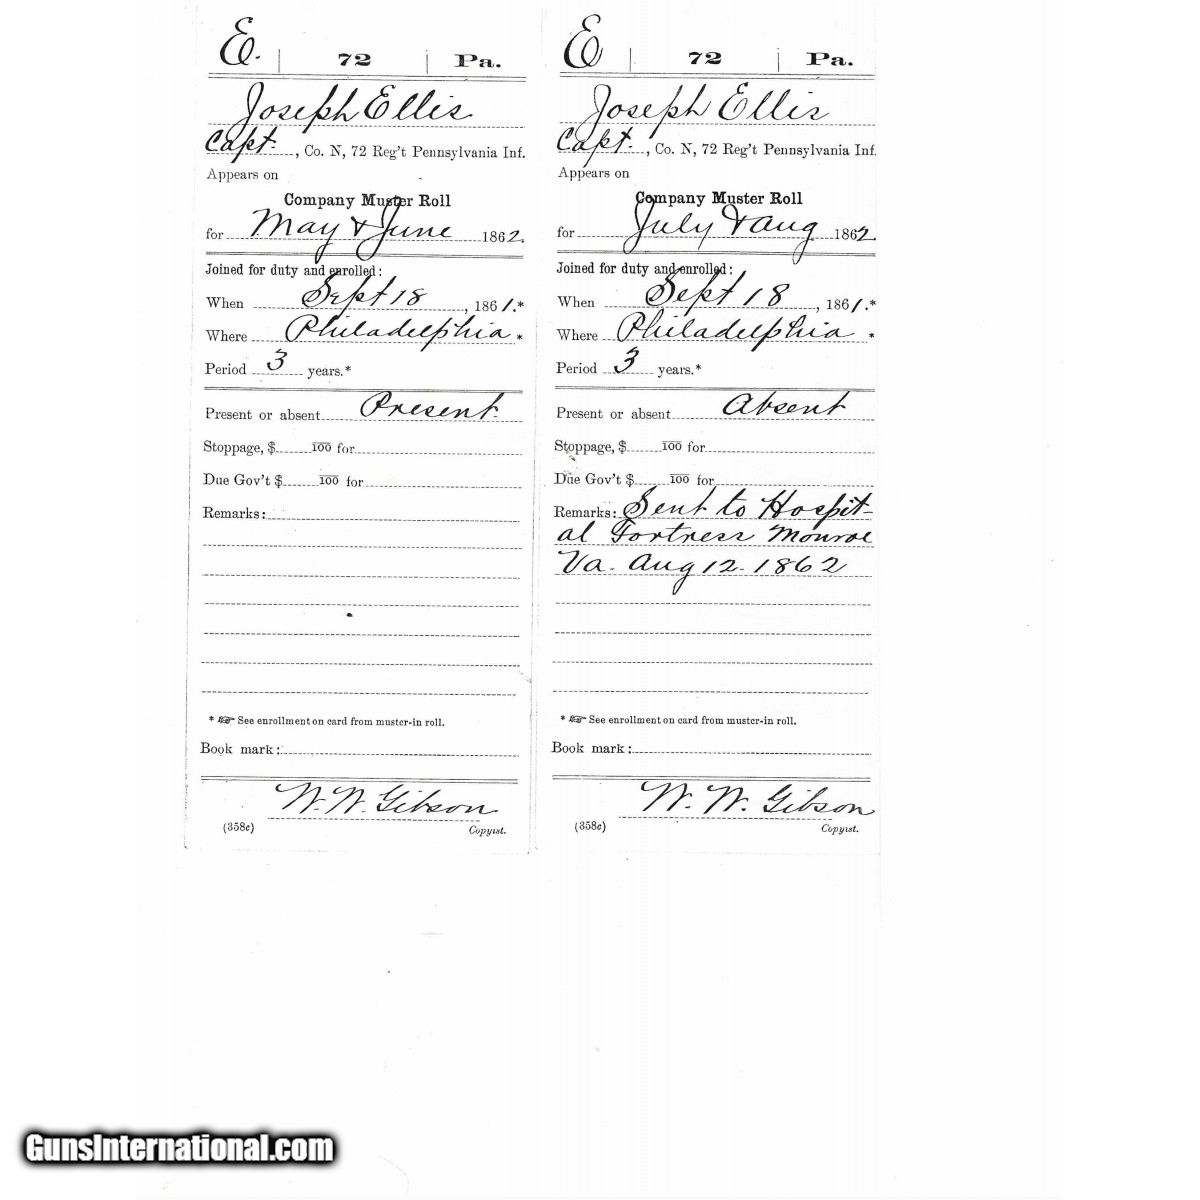 E. | 72 | Pa.
Joseph Ellis
Capt. , Co. N, 72 Reg't Pennsylvania Inf.
Appears on
Company Muster Roll
for May & June 1862.
Joined for duty and enrolled:
When Sept 18, 1861.*
Where Philadelphia *
Period 3 years.*
Present or absent Present.
Stoppage, $ 100 for
Due Gov't $ 100 for
Remarks:
* ☞ See enrollment on card from muster-in roll.
Book mark:
W. W. Gibson
(358c) Copyist.
E | 72 | Pa.
Joseph Ellis
Capt. , Co. N, 72 Reg't Pennsylvania Inf.
Appears on
Company Muster Roll
for July & Aug 1862
Joined for duty and enrolled:
When Sept 18, 1861.*
Where Philadelphia *
Period 3 years.*
Present or absent Absent
Stoppage, $ 100 for
Due Gov't $ 100 for
Remarks: Sent to Hospit-
al Fortress Monroe
Va. Aug 12. 1862
* ☞ See enrollment on card from muster-in roll.
Book mark:
W. W. Gibson
(358c) Copyist.
GunsInternational.com